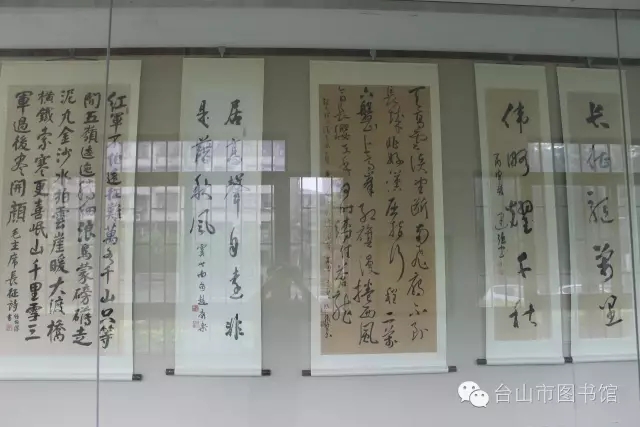 紅軍不怕遠征難萬水千山只等
閑五嶺逶迤騰細浪烏蒙磅礴走
泥丸金沙水拍雲崖暖大渡橋
橫鐵索寒更喜岷山千里雪三
軍過後尽開顏 毛主席長征詩
居高聲自遠非
是藉秋風
天高雲淡望断南飛雁不到
長城非好漢屈指行程二萬
六盤山上高峰紅旗漫捲西風
今日長纓在手何時縛住蒼龍
伟略耀千秋
长征 萬里
台山市图书馆